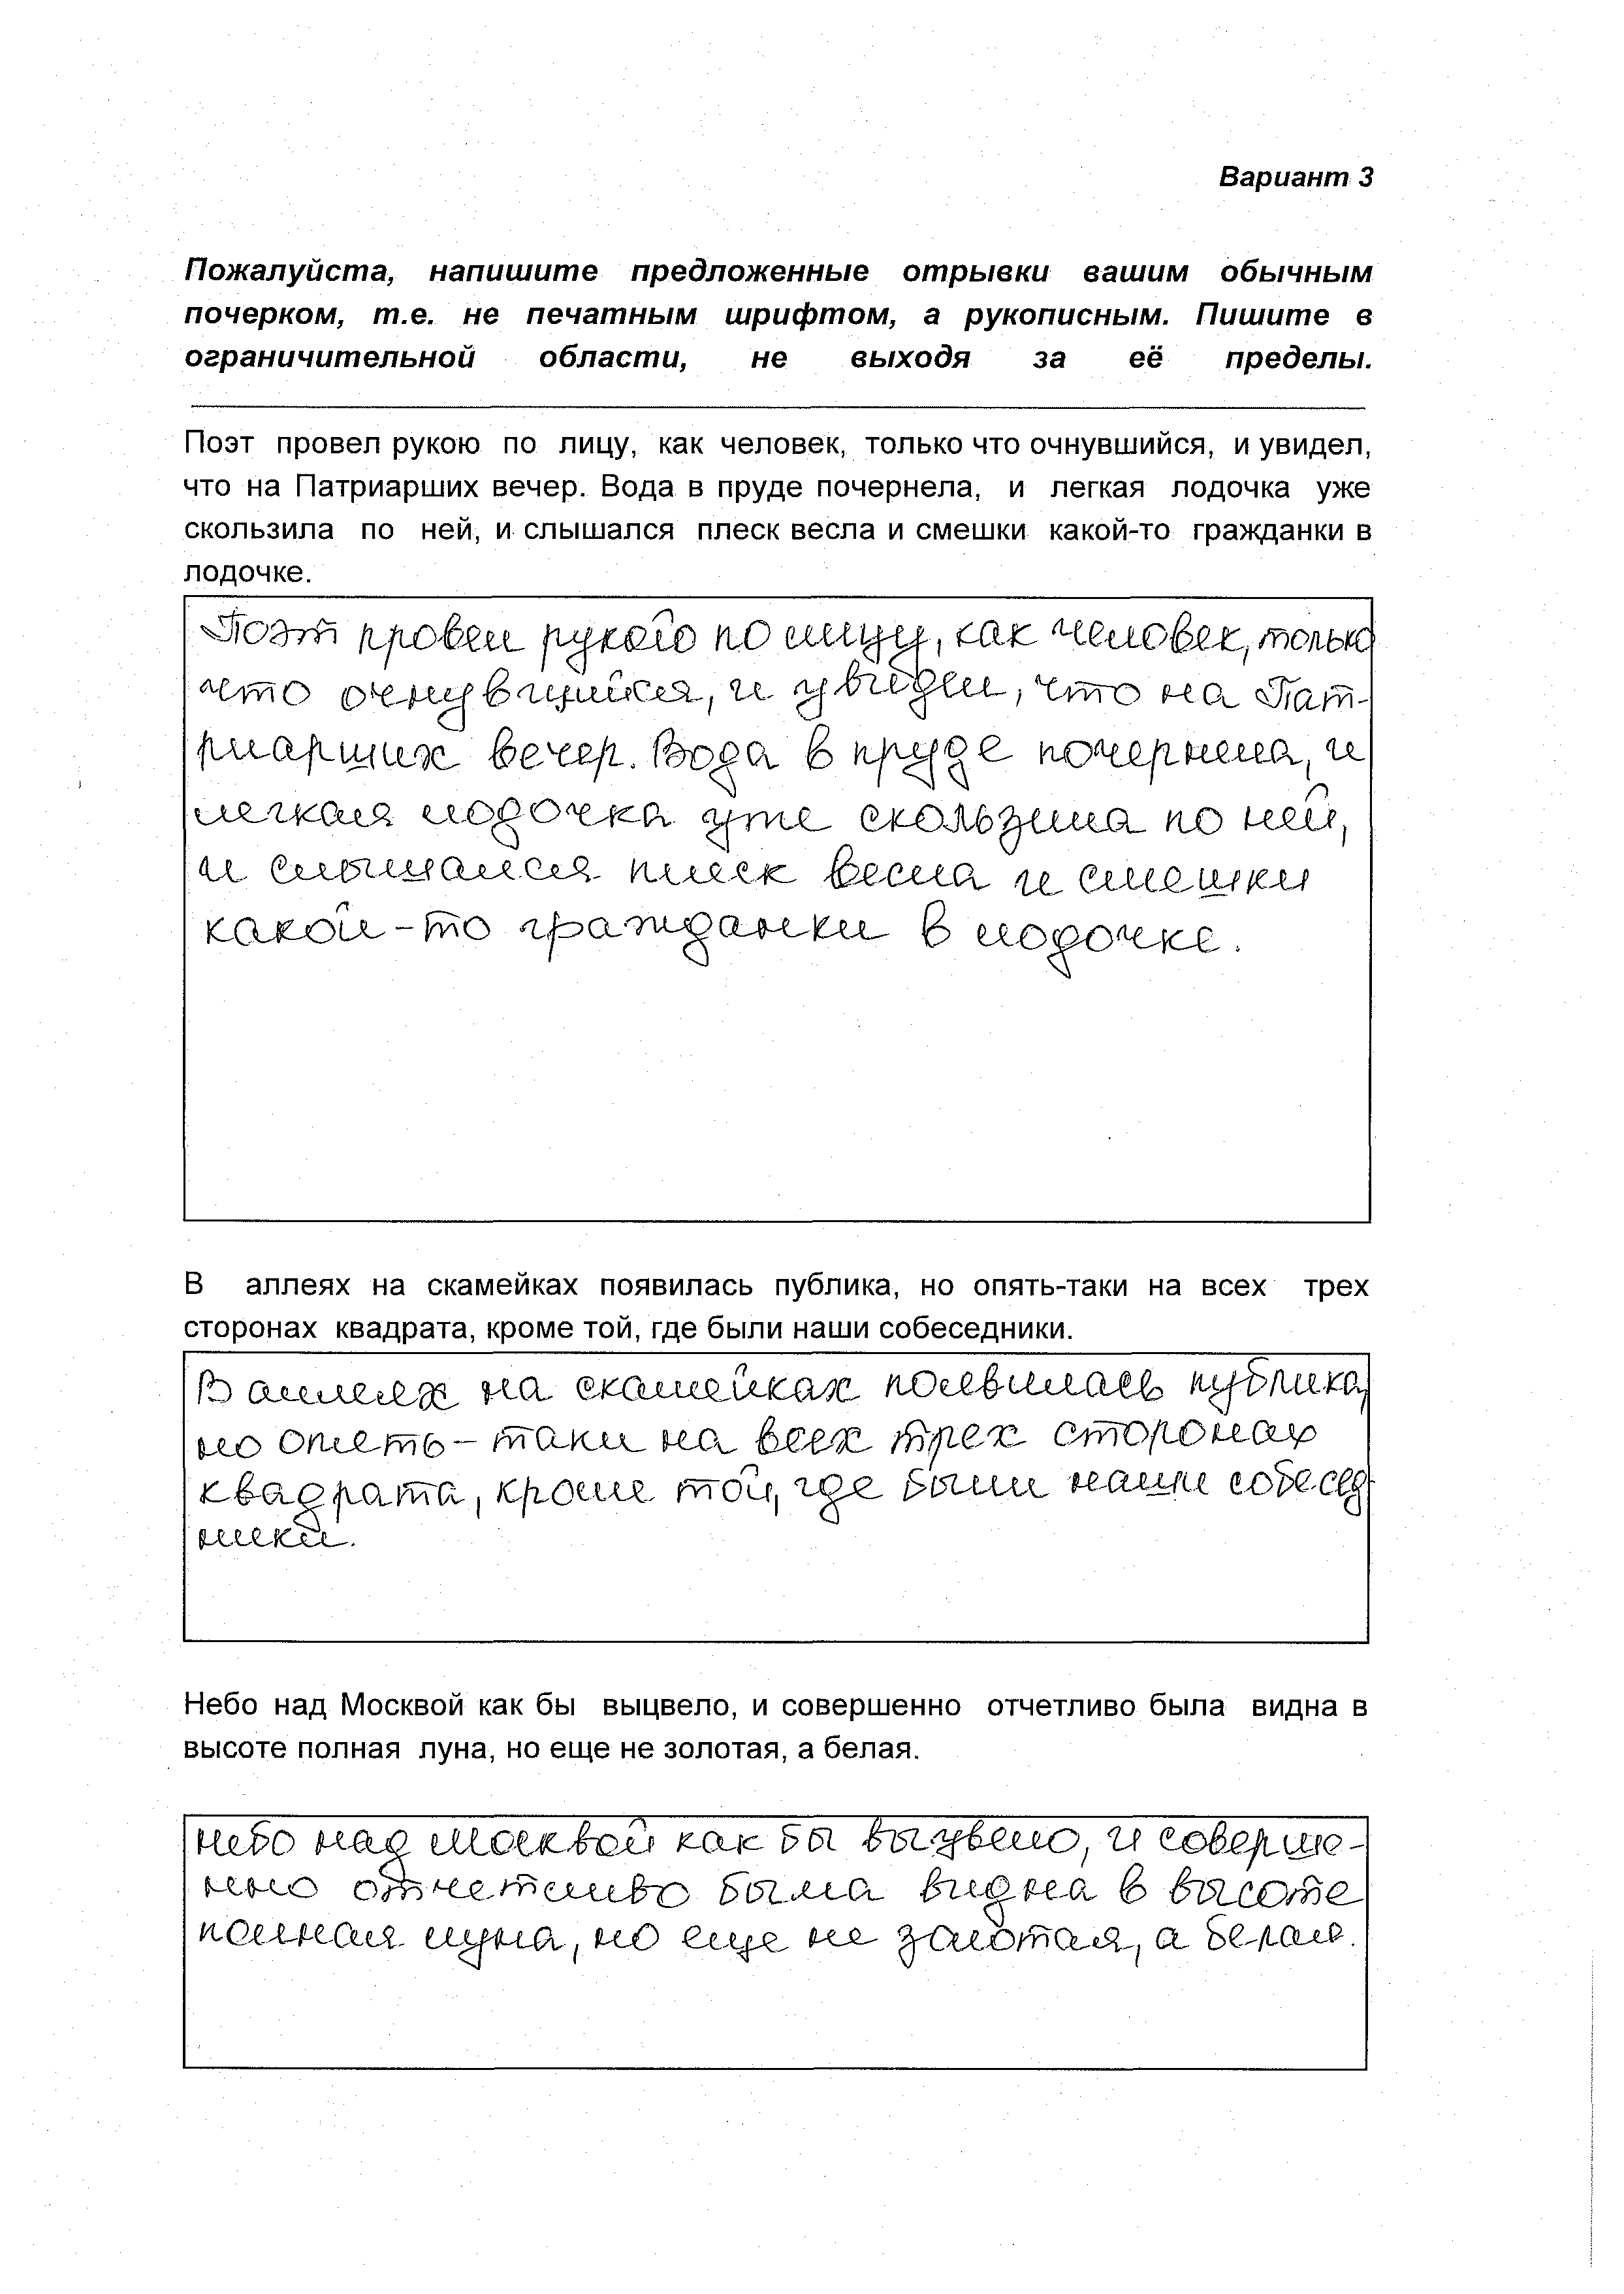 Вариант 3
Пожалуйста, напишите предложенные отрывки вашим обычным
почерком, т.е. не печатным шрифтом, а рукописным. Пишите в
ограничительной области, не выходя за её пределы.
Поэт провел рукою по лицу, как человек, только что очнувшийся, и увидел,
что на Патриарших вечер. Вода в пруде почернела, и легкая лодочка уже
скользила по ней, и слышался плеск весла и смешки какой-то гражданки в
лодочке.
Поэт провел рукою по лицу, как человек, только
что очнувшийся, и увидел, что на Пат-
риарших вечер. Вода в пруде почернела, и
легкая лодочка уже скользила по ней,
и слышался плеск весла и смешки
какой-то гражданки в лодочке.
В аллеях на скамейках появилась публика, но опять-таки на всех трех
сторонах квадрата, кроме той, где были наши собеседники.
В аллеях на скамейках появилась публика,
но опять-таки на всех трех сторонах
квадрата, кроме той, где были наши собесед
ники.
Небо над Москвой как бы выцвело, и совершенно отчетливо была видна в
высоте полная луна, но еще не золотая, а белая.
Небо над Москвой как бы выцвело, и соверше-
нно отчетливо была видна в высоте
полная луна, но еще не золотая, а белая.